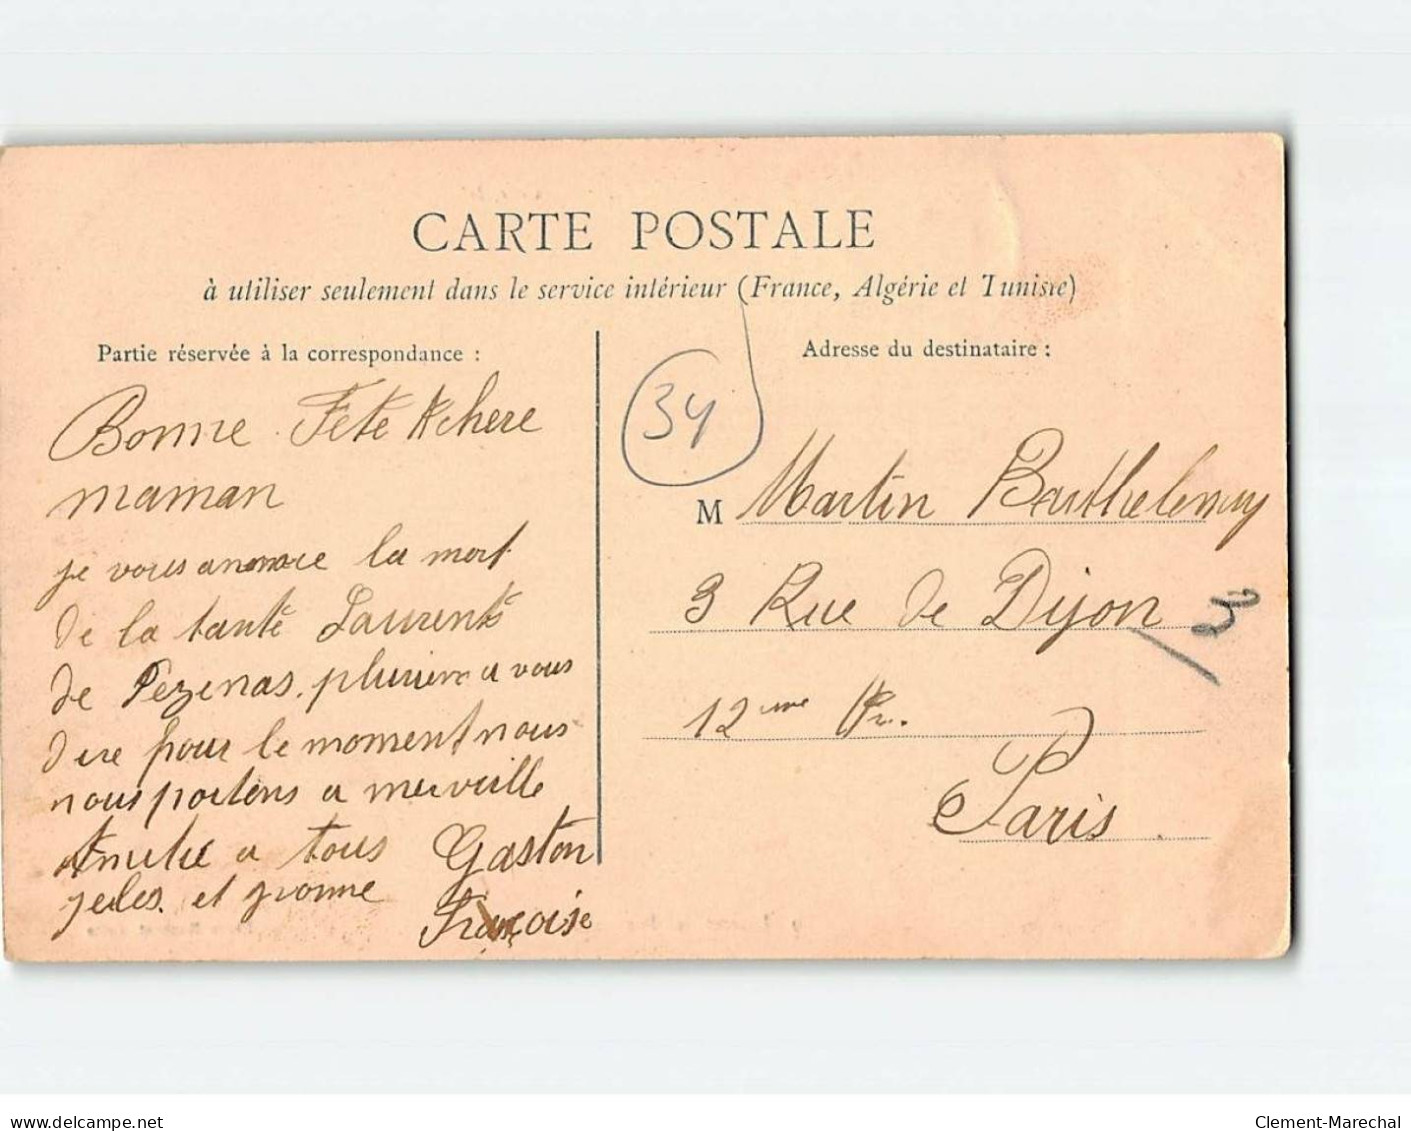 CARTE POSTALE
à utiliser seulement dans le service intérieur (France, Algérie et Tunisie)
Partie réservée à la correspondance :
Bonne Fete chere
maman
je vous annonce la mort
de la tante Laurente
de Pezenas. a vous
dire pour le moment nous
nous portons a merveille
Amitie a tous Gaston
et
Françoise
34
Adresse du destinataire :
M Martin Barthelemy
3 Rue de Dijon
12 eme
Paris
www.delcampe.net
Clement-Marechal